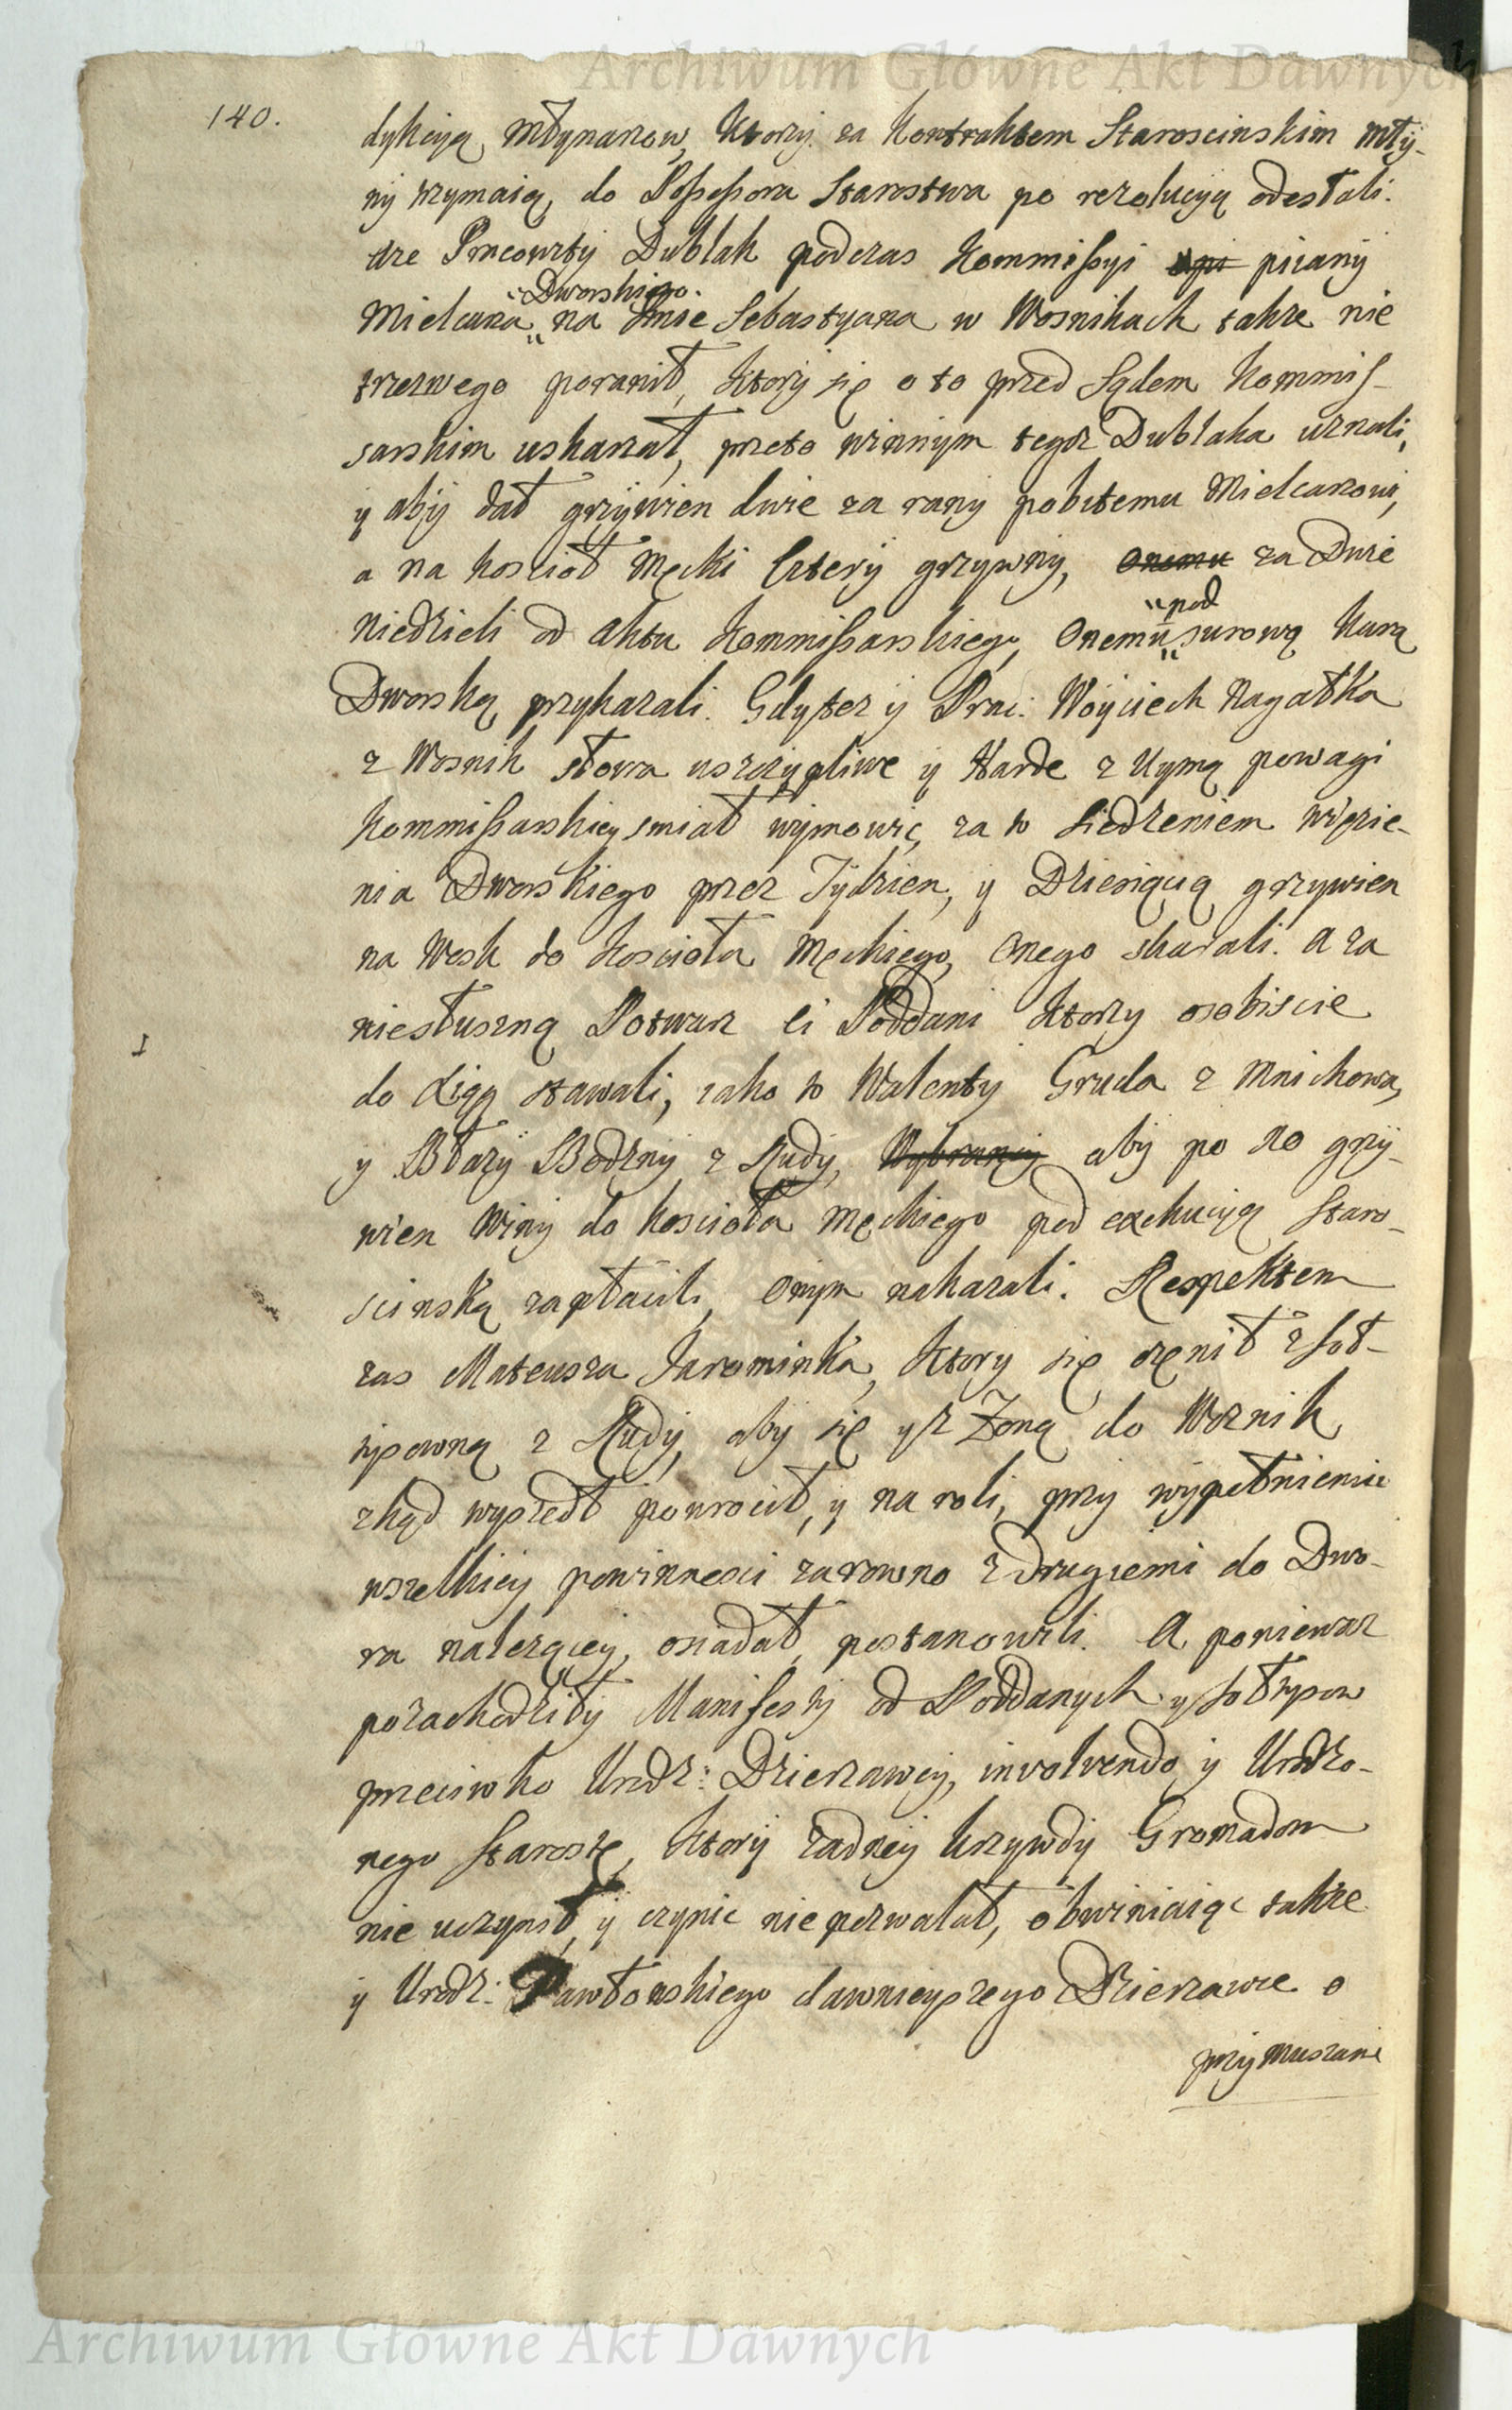 Archiwum Główne Akt Dawnych
140.
dykcyą Młynarzow, Ktorzy za Kontraktem Staroscinskim Mły-
ny trzymaią, do Possessora Starostwa po rezolucyą odesłali.
że Pracowity Dublak podczas Kommissyi pijany
"Dworskiego.
Mielcarza " na Imie Sebastyana w Wosnikach także nie
trzezwego poranił, Ktory się o to przed Sądem Kommis-
sarskim uskarzał, przeto winnym tegoz Dublaka uznali,
y aby dał grzywien dwie za rany pobitemu Mielcarzowi,
a na kosciół Męcki Cztery grzywny, Onemu za Dwie
Niedzieli od Aktu Kommissarskiego, Onemu
"pod
" surową Karą
Dworską, przykazali. Gdysz y Prac: Woyciech Nagatka
z Wosnik słowa uszczypliwe y Harde z Uymą powagi
Kommissarskiey smiał wymowić, za to siedzeniem więzie-
nia Dworskiego przez Tydzien, y Dziesiącią grzywien
na Wosk do Kościoła Męckiego, Onego skarali. a za
niesłuszną Potwarz Ci Poddani Ktorzy osobiscie
do Xiąg stawali, iako to Walenty Gruda z Mnichowa,
y Błazy Bedzny z Rudy, Wybrancy aby po 10 grzy-
wien Winy do Koscioła Męckiego pod exekucyą Staro-
scinską zapłacili, Onym nakazali. Respektem
zas Mateusza Jarominka, Ktory się ozenił z Soł-
tysowną z Rudy, aby się y z Zoną do Woznik
zkąd wyszedł powrocił, y na roli, przy wypełnieniu
wszelkiey powinnosci zarowno z drugiemi do Dwo-
ru nalezącey, osiadał, postanowili. A poniewaz
pozachodziły Manifesty od Poddanych y Sołtysow
przeciwko Urodz: Dzierzawcy, involvendo y Urodzo-
nego Starostę, Ktory zadney krzywdy Gromadom
nie uczynił, y czynic nie pozwalał, obwiniaiąc także
y Urodz: Pawłowskiego dawnieyszego Dzierzawce o
przymuszanie
Archiwum Główne Akt Dawnych